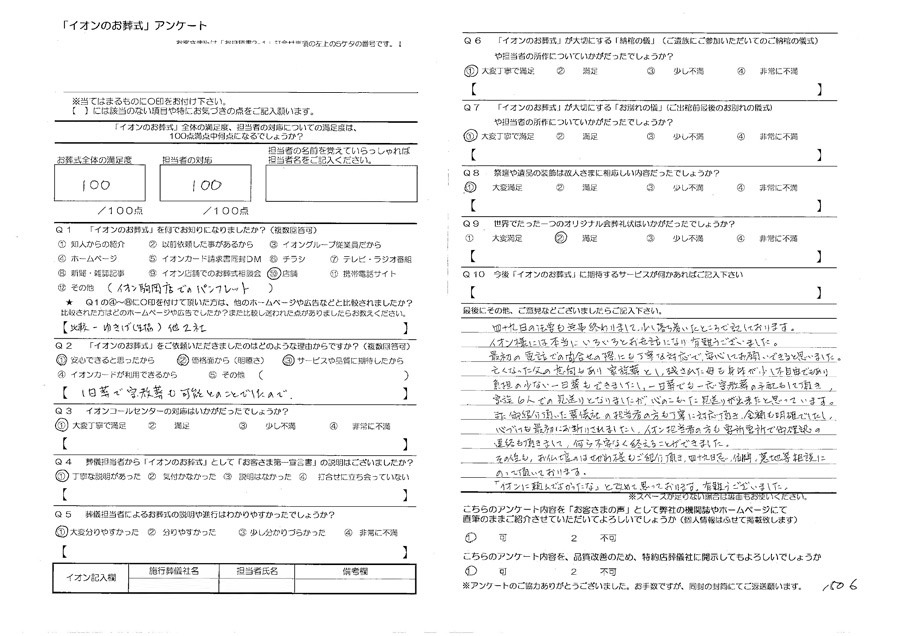 「イオンのお葬式」アンケート
※当てはまるものに〇印をお付け下さい。
【　】には該当のない項目や特にお気づきの点をご記入願います。
「イオンのお葬式」全体の満足度、担当者の対応についての満足度は、
100点満点中何点になるでしょうか？
お葬式全体の満足度　担当者の対応　担当者の名前を覚えていらっしゃれば
担当者名をご記入ください。
100　100
／100点　／100点
Q１　「イオンのお葬式」を何でお知りになりましたか？（複数回答可）
① 知人からの紹介　② 以前依頼した事があるから　③ イオングループ従業員だから
④ ホームページ　⑤ イオンカード請求書同封DM　⑥ チラシ　⑦ テレビ・ラジオ番組
⑧ 新聞・雑誌記事　⑨ イオン店舗でのお葬式相談会　⑩ 店舗　⑪ 携帯電話サイト
⑫ その他　（イオン駒岡店でのパンフレット　）
★　Q１の④〜⑧に〇印を付けて頂いた方は、他のホームページや広告などと比較されましたか？
比較された方はどのホームページや広告でしたか？また比較し迷われた点がありましたらお教えください。
他２社　】
Q２　「イオンのお葬式」をご依頼いただきましたのはどのような理由からですか？（複数回答可）
① 安心できると思ったから　② 価格面から（明瞭さ）　③ サービスや品質に期待したから
④ イオンカードが利用できるから　⑤ その他　（　）
【　１日葬で家族葬も可能とのことでしたので。　】
Q３　イオンコールセンターの対応はいかがだったでしょうか？
① 大変丁寧で満足　② 満足　③ 少し不満　④ 非常に不満
【　】
Q４　葬儀担当者から「イオンのお葬式」として「お客さま第一宣言書」の説明はございましたか？
① 丁寧な説明があった　② 気付かなかった　③ 説明はなかった　④ 打合せに立ち会っていない
【　】
Q５　葬儀担当者によるお葬式の説明や進行はわかりやすかったでしょうか？
① 大変分りやすかった　② 分りやすかった　③ 少し分かりづらかった　④ 非常に不満
【　】
イオン記入欄　施行葬儀社名　担当者氏名　備考欄
Q６　「イオンのお葬式」が大切にする「納棺の儀」（ご遺族にご参加いただいてのご納棺の儀式）
や担当者の所作についていかがだったでしょうか？
① 大変丁寧で満足　② 満足　③ 少し不満　④ 非常に不満
【　】
Q７　「イオンのお葬式」が大切にする「お別れの儀」（ご出棺前最後のお別れの儀式）
や担当者の所作についていかがだったでしょうか？
① 大変丁寧で満足　② 満足　③ 少し不満　④ 非常に不満
【　】
Q８　祭壇や遺品の装飾は故人さまに相応しい内容だったでしょうか？
① 大変満足　② 満足　③ 少し不満　④ 非常に不満
【　】
Q９　世界でたった一つのオリジナル会葬礼状はいかがだったでしょうか？
① 大変満足　② 満足　③ 少し不満　④ 非常に不満
【　】
Q１０　今後「イオンのお葬式」に期待するサービスが何かあればご記入下さい
【　】
最後にその他、ご意見などございましたらご記入下さい。
四十九日の法要も無事終わりまして、少し落ち着いたところで記しております。
イオン様には本当にいろいろとお世話になり有難うございました。
最初の電話での問合せの際にも丁寧な対応で、安心してお願いできると思いました。
亡くなった父の意向もあり家族葬とし、残された母も身体が少し不自由であり
負担の少ない一日葬もできましたし、一日葬でも一応家族葬の手配もして頂き、
家族6人での見送りとなりましたが心のこもった見送りが出来たと思っています。
また御紹介頂いた葬儀社の担当者の方も丁寧に対応頂き、金額も明確でしたし、
心づけも最初にお断りされましたし、イオン担当者の方も要所要所で御確認の
連絡も頂きまして、何ら不安なく終えることができました。
その後も、お仏壇のはせがわ様もご紹介頂き、四十九日忌、位牌、墓地等相談に
のって頂いております。
「イオンに頼んでよかったな」と改めて思っております。有難うございました。
※スペースが足りない場合は裏面もお使いください。
こちらのアンケート内容を「お客さまの声」として弊社の機関誌やホームページにて
直筆のままご紹介させていただいてよろしいでしょうか（個人情報はふせて掲載致します）
１　可　２　不可
こちらのアンケート内容を、品質改善のため、特約店葬儀社に開示してもよろしいでしょうか
１　可　２　不可
※アンケートのご協力ありがとうございました。お手数ですが、同封の封筒にてご返送願います。
1506